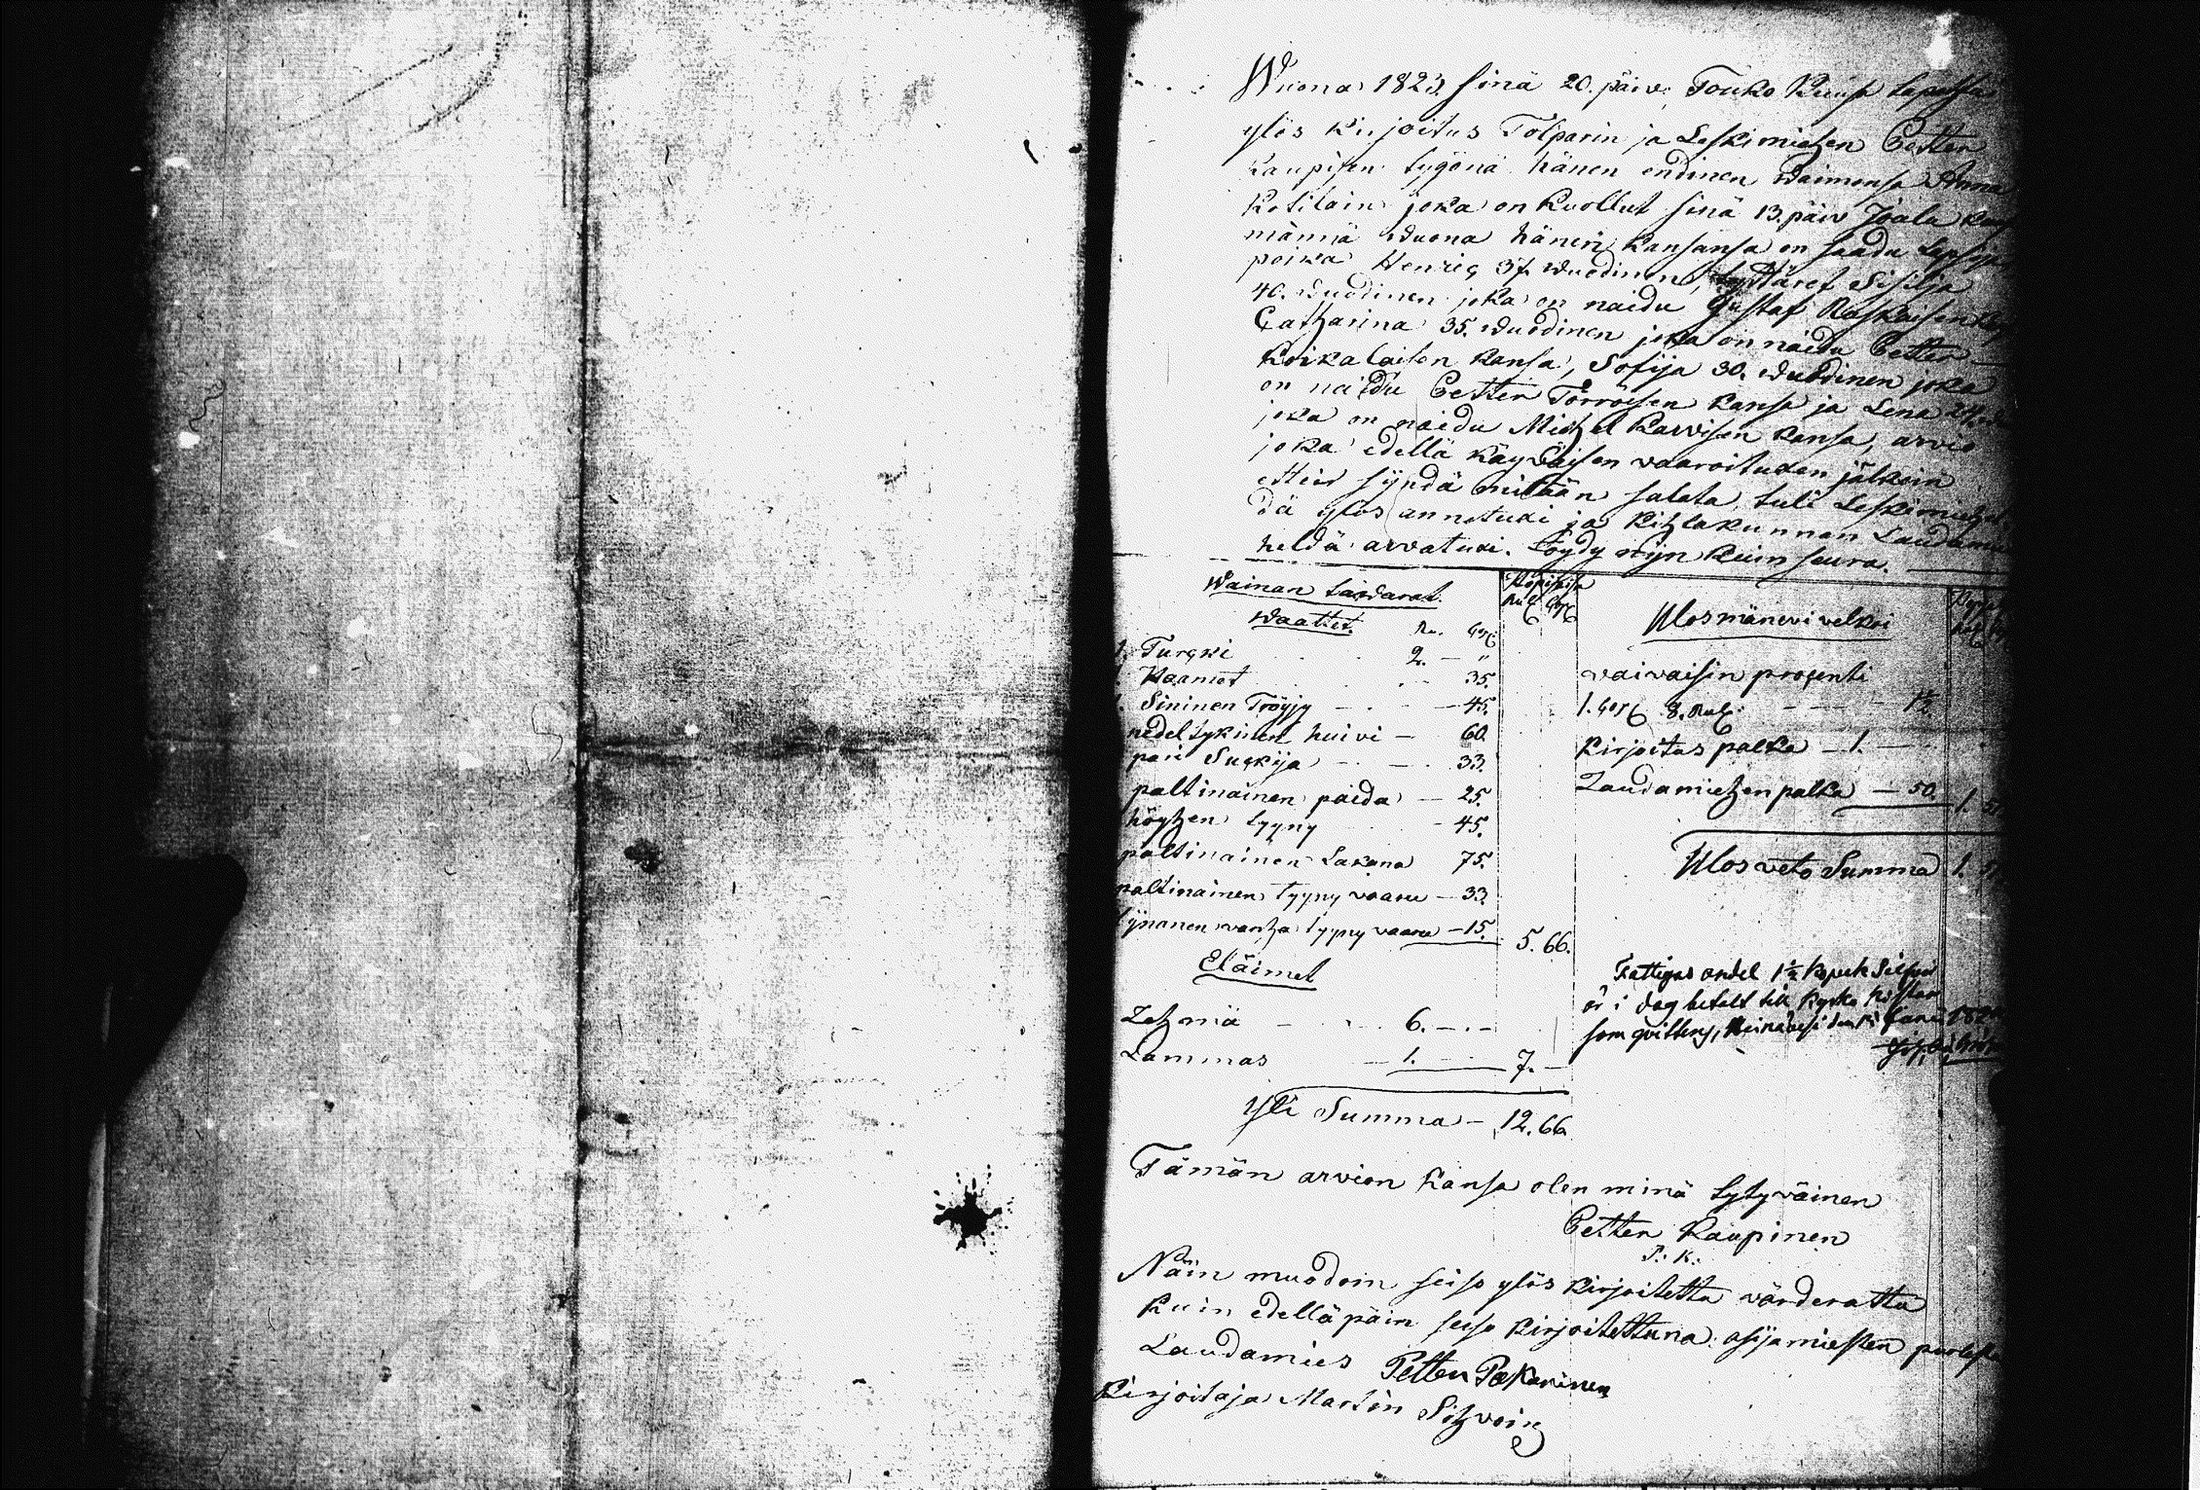 Wuona 1823 sinä 20. päiv. Touko Kuusa tapahtu
ylös kirjoitus Tolparin ja Leskimiehen Petter
Kaupisen tygönä hänen endinen Waimonsa Anna
Kotilain joka on kuollut sinä 13. päiv Joulu kuu
männä wuona hänen kansansa on saadu Lapsija
poika Henric 37 wuodinen, tyttäret Sisilja
40. wuodinen joka on naidu Gustaf Raskaisen
Catharina 35. wuodinen joka on naidu Petter
Koikalaisen kansa, Sofija 30. wuodinen joka
on naidu Petter Törröisen kansa ja Lena
joka on naidu Michel Karvisen kansa, arvio
joka edellä käyväisen vaaroituxen jälkein
ettei syydä mitään salata, tuli Leskimiehel
dä ylös annetuxi ja kihlakunnan Laudamie
heldä arvatuxi. Löydy nijn kuin seura.
Wainan tavarat.
Waattet. Ru. Cop.
1. Turcki 2. — "
Haamet 35.
1. Sininen Tröyjy — 45.
nedeltykinen huivi — 60.
pari Suckija — 33.
paltinainen paida — 25.
höyhen tyyny — 45.
paltinainen Lakana 75.
paltinainen tyyny vaaru — 33.
vanha tyyny vaaru — 15. 5. 66.
Eläimet
Lehmä — 6. —
Lammas — 1. — 7. —
Yli Summa — 12. 66.
Ulosmänevi velkoi
vaivaisin procenti
1. Cop. 8. Rup.
Kirjoitus palka — 1. —
Laudamiehen palka — 50.
Ulosveto Summa 1.
Fattigas andel 1½ Kopek Silfver
är i dag betalt till Kyrko Kistan
som qvitteras,
Tämän arvion kansa olen minä tytyväinen
Petter Kaupinen
P. K.
Näin muodoin seiso ylös kirjoitettu värderattu
kuin edelläpäin seiso kirjoitettuna asijamiesten puolest
Laudamies Petter Pakarinen
Kirjoitaja Martin Sihvoin